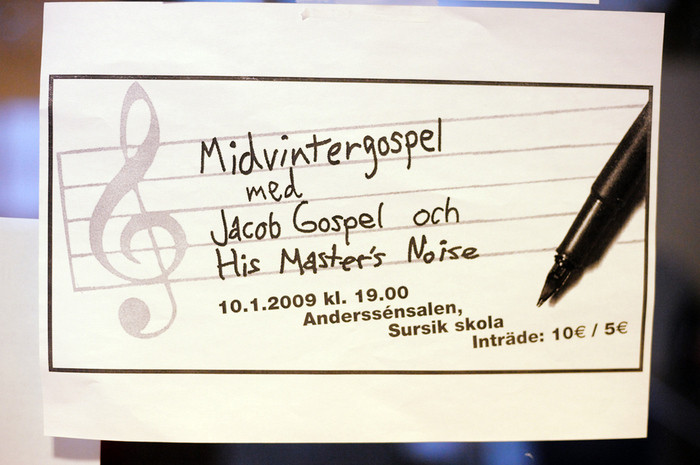 Midvintergospel
med
Jacob Gospel och
His Master's Noise
10.1.2009 kl. 19.00
Anderssénsalen,
Sursik skola
Inträde: 10€ / 5€